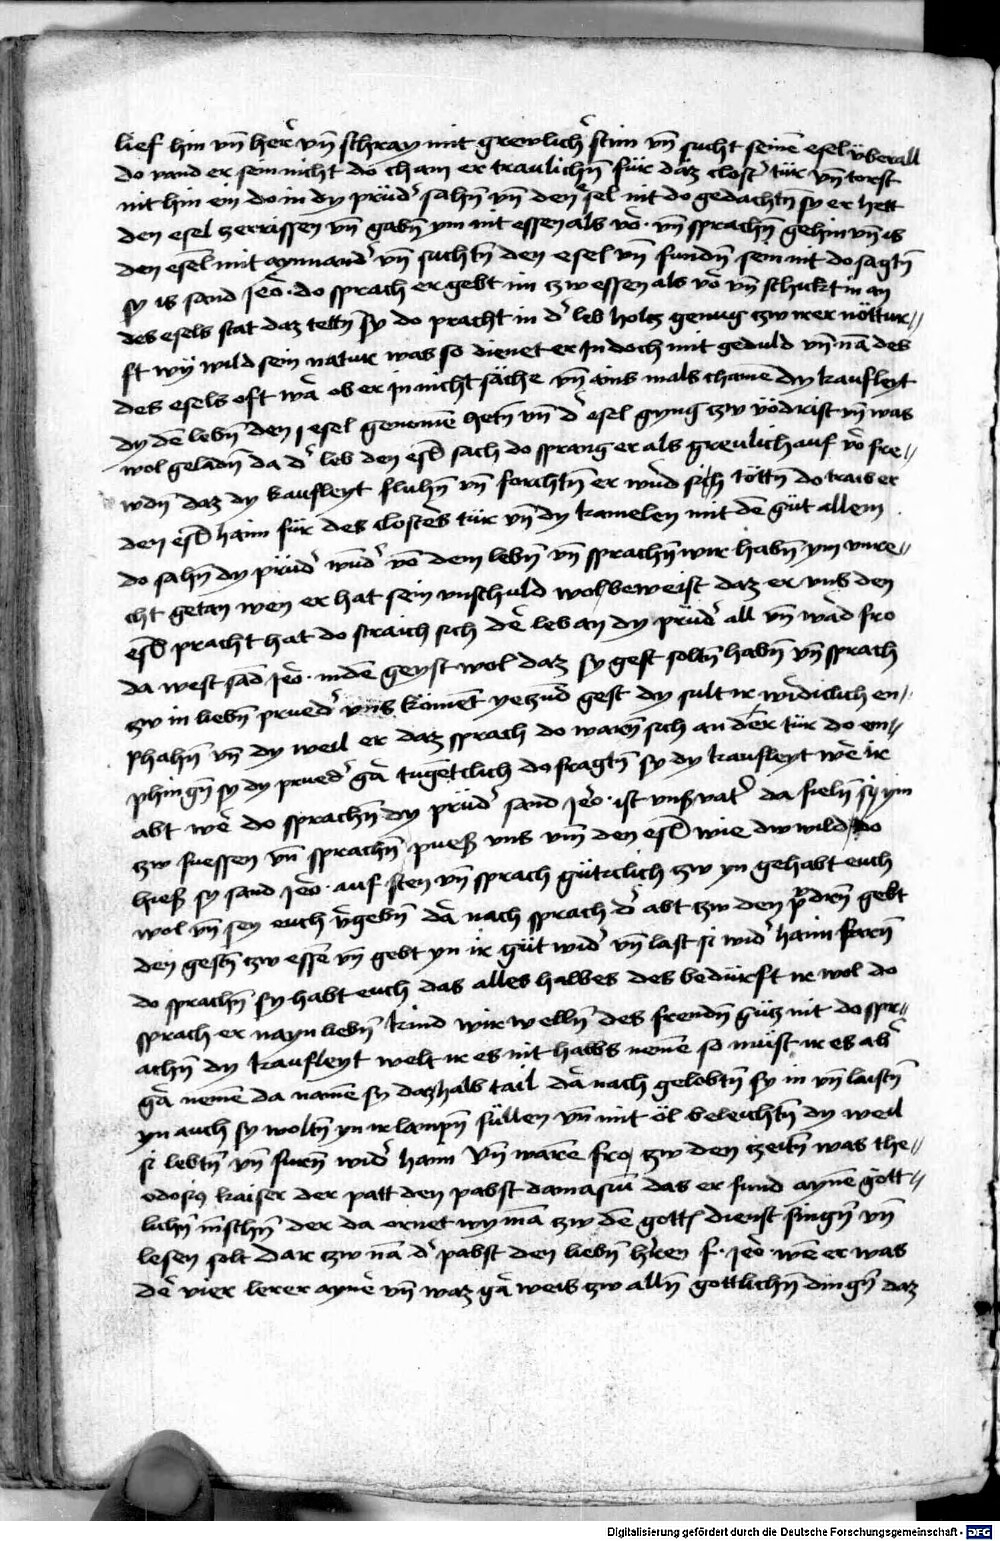 lief hin vn̄ her̄ vn̄ schray mit grewlicħ stim vn̄ sucht seinē esel überall
do vand er sein nicht do cham er traulichn̄ für daz clostˀ tür vn̄ torst
nit hin ein do in dy prüdˀ sahn̄ vn̄ den esel nit do gedachtn̄ sy er hett
den esel zerrissen vn̄ gabn̄ ym nit essen als vō · vn̄ sprachn̄ gehin vn̄ is
den esel mit aynnandˀ vn̄ suchtn̄ den esel vn̄ fundn̄ sein nit do sagtn̄
sy is sand Jeō · do sprach er gebt im tzw essen als vō vn̄ schickt in an
des esels stat daz tettn̄ sy do pracht in dˀ leb holtz genug tzw irer nöttur//
ft wÿ wild sein natur was so dienet er In doch mit geduld vn̄ nā des
des esels oft wā ob er in nicht säche vn̄ ains mals chame dy kaufleyt
dy dē lebn̄ den esel genomē hetn̄ vn̄ dˀ esel gyng tzw vödrist vn̄ was
wol geladn̄ da dˀ leb den esl sach do sprang er als greulich auf vō fre//
wdn̄ daz dy kaufleyt fluhn̄ vn̄ forchtn̄ er wūd sich töttn̄ do traib er
den esl haim für des closters tür vn̄ dy kamelen mit dē güt allem
do sahn̄ dy prüdˀ wūdˀ vō dem lebn̄ vn̄ sprachn̄ wir habn̄ ym vnre//
cht getan wen er hat sein vnschuld wol beweist daz er vns den
esl pracht hat do straich sich dē leb an dy prüdˀ all vn̄ wād fro
da west sād Jeō · in dē geyst wol daz sy gest soltn̄ habn̄ vn̄ sprach
tzw in liebn̄ pruedˀ vns komēt yetzūd gest dy sult ir wīdiclich en//
phahn̄ vn̄ dy weil er daz sprach do warn̄ sich an der tür do en//
phingn̄ sy dy pruedˀ gā tugētlich do fragtn̄ sy dy kaufleyt wē ir
abt wē do sprachn̄ dy prüdˀ sand Jeō · ist vnß vatˀ da fieln̄ sy ym
tzw fuessen vn̄ sprachn̄ pueß vns vm̄ den esl wie dw wild do
hieß sy sand Jeō · auf sten vn̄ sprach güticlich tzw yn gehabt euch
wol vn̄ sey euch v̄gebn̄ dā nach sprach dˀ abt tzw den prüdrn̄ gebt
den gestn̄ tzw essē vn̄ gebt yn ir güt widˀ vn̄ last si widˀ haim farn̄
do sprachn̄ sy habt euch das alles halbes des bedürft ir wol do
sprach er nayn liebn̄ kind wir welln̄ des fremdn̄ gütz nit do spr//
achn̄ dy kaufleyt welt ir es nit halbs nemē so müist ir es abˀ
gā nemē da namē sy daz halb tail dā nach gelobtn̄ sy in vn̄ laistn̄
yn auch sy woltn̄ yn ir lampn̄ füllen vn̄ mit öl beleichtn̄ dy weil
si lebtn̄ vn̄ furn̄ widˀ haim vn̄ warē fro tzw den tzeitn̄ was the//
odosiꝰ kaiser der patt den pabst damasiū das er fund aynē gött//
lichn̄ mēschn̄ der da ornet wy mā tzw dē gottˀ dienst singn̄ vn̄
lesen solt Dar tzw nā dˀ pabst den liebn̄ hˀren s · Jeō · wē er was
dē vier lerer aynē vn̄ waz gā weis tzw alln̄ gottlichn̄ dingn̄ daz
Digitalisierung gefördert durch die Deutsche Forschungsgemeinschaft - DFG